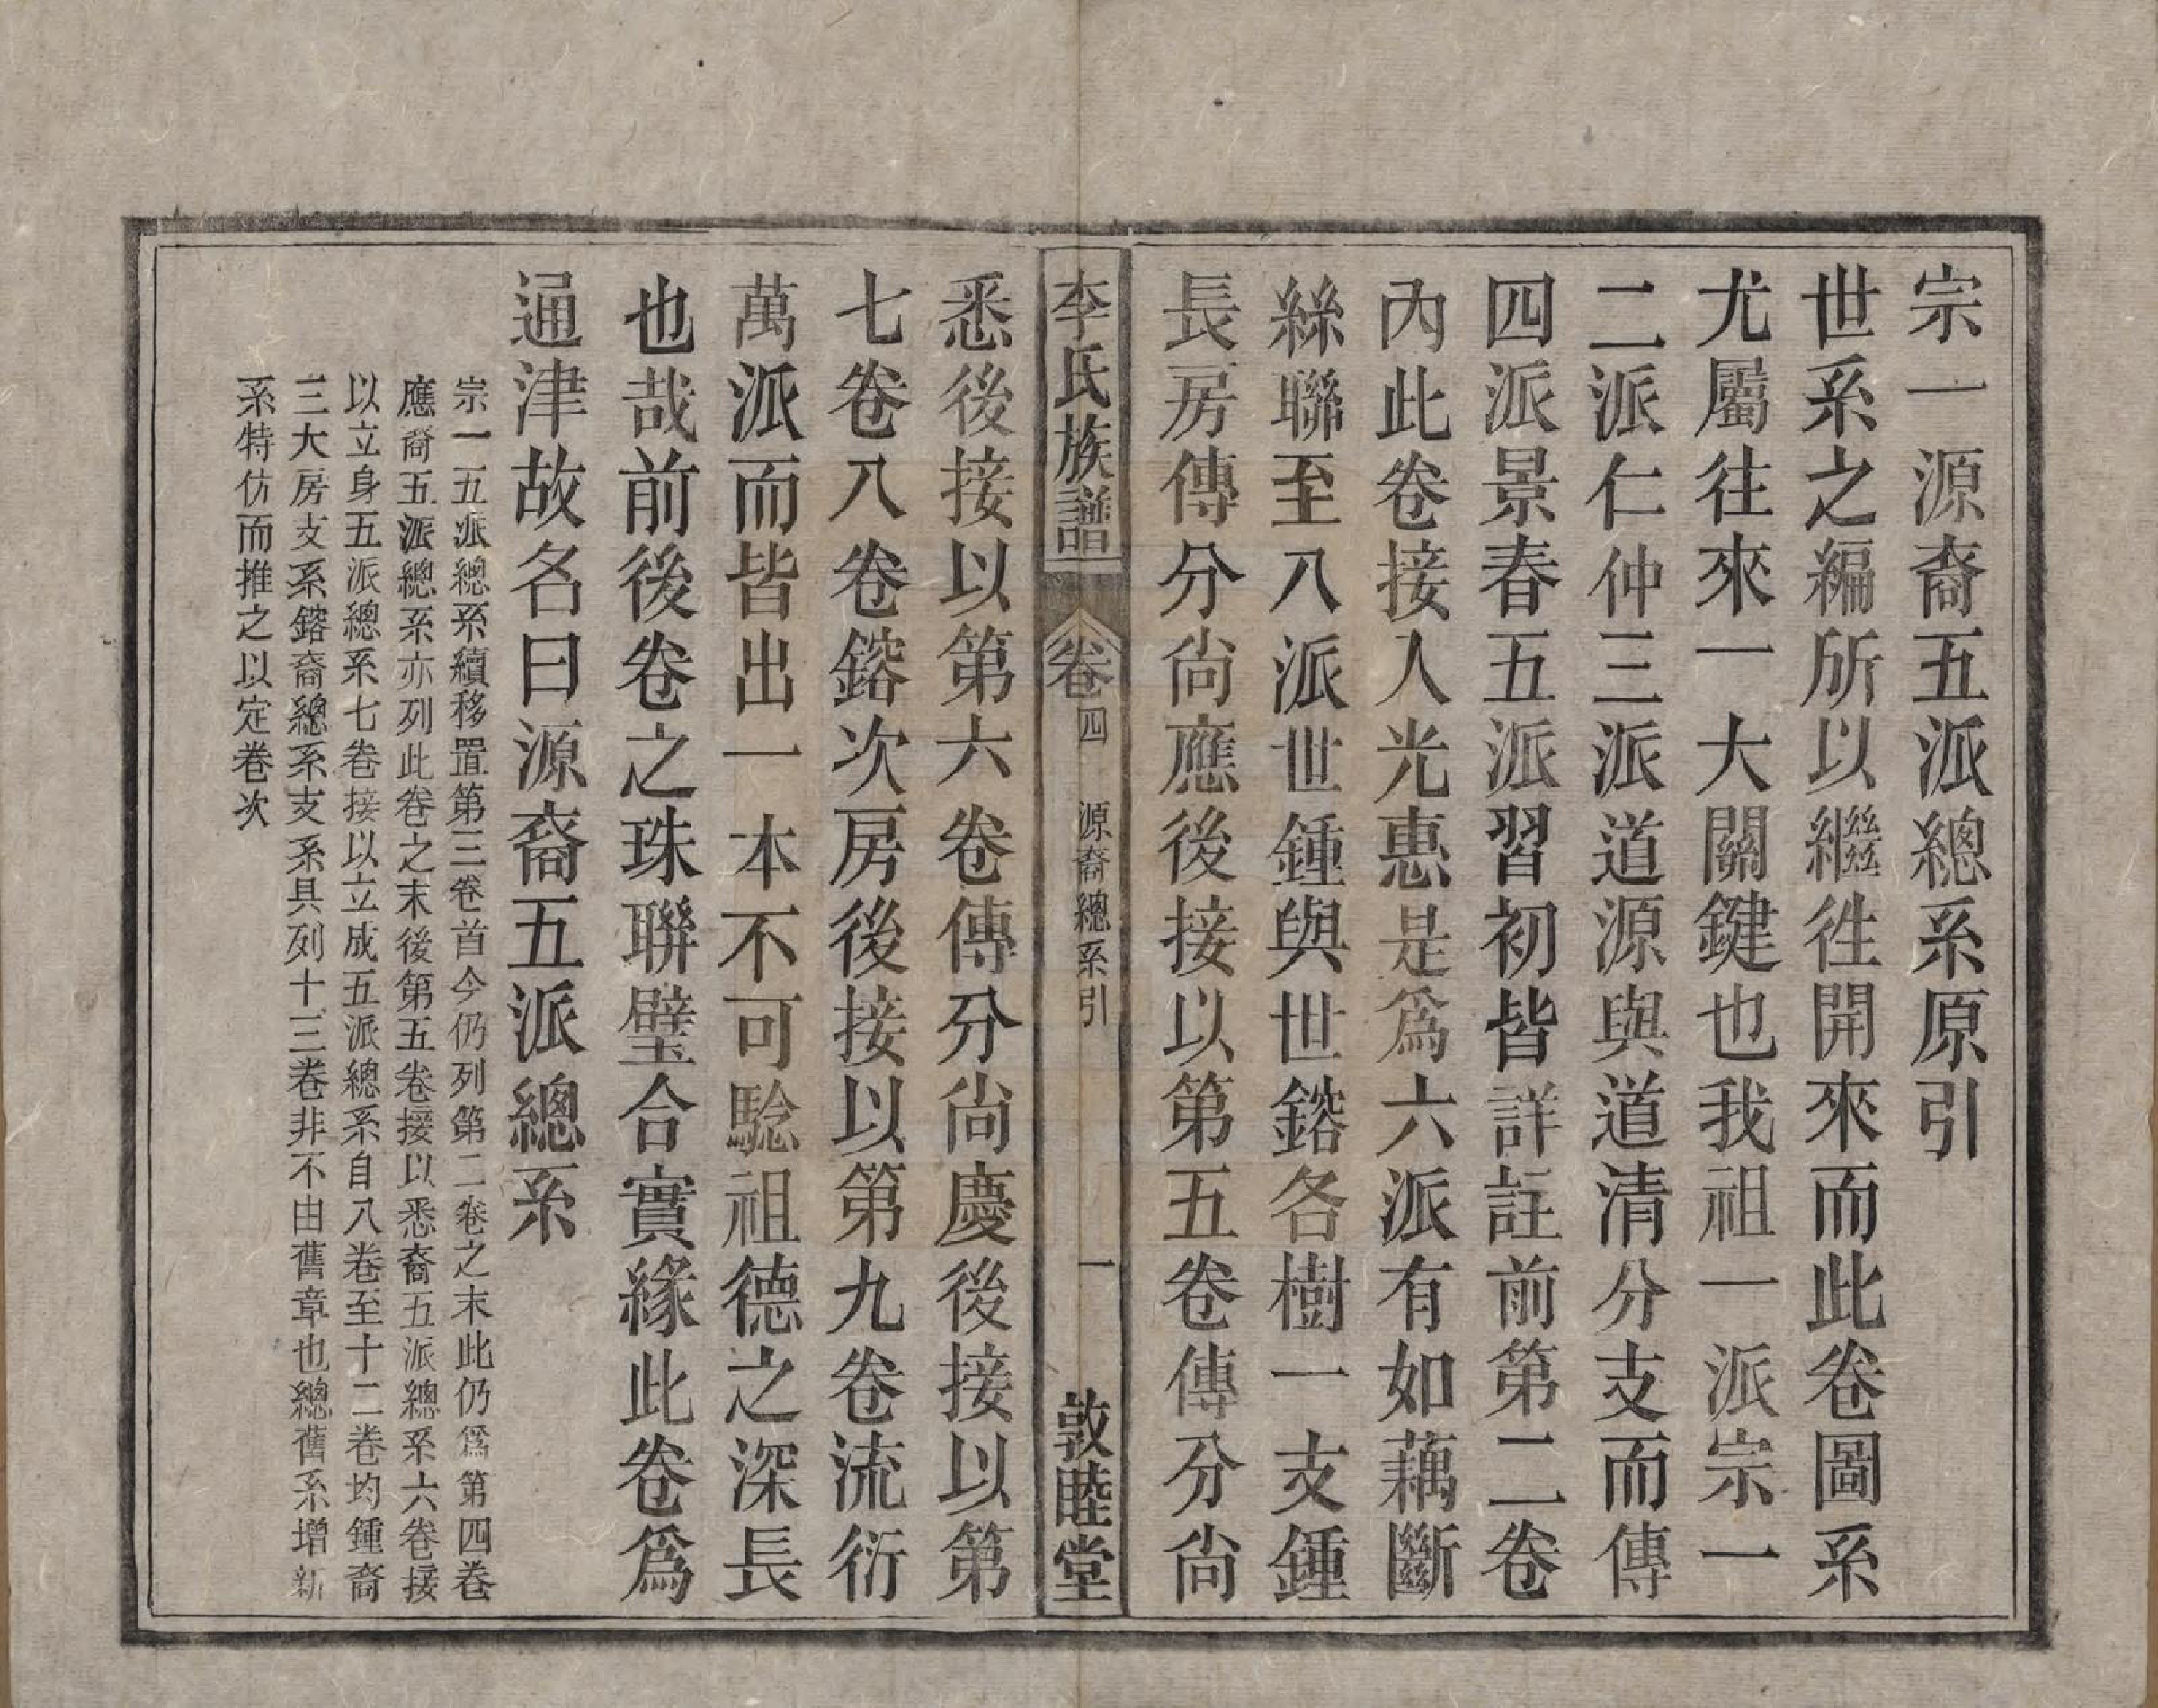 宗一源裔五派總系原引
世系之編所以繼徃開來而此卷圖系
尤屬往來一大關鍵也我祖一派宗一
二派仁仲三派道源與道清分支而傳
四派景春五派習初皆詳註前第二卷
內此卷接人光惠是爲六派有如藕斷
絲聯至八派世鍾與世鎔各樹一支鍾
長房傳分尙應後接以第五卷傳分尙
李氏族譜 卷四 源裔總系引 一 敦睦堂
悉後接以第六卷傳分尙慶後接以第
七卷八卷鎔次房後接以第九卷流衍
萬派而皆出一本不可騐祖德之深長
也哉前後卷之珠聯璧合實緣此卷爲
通津故名曰源裔五派總系
宗一五派總系續移置第三卷首今仍列第二卷之末此仍爲第四卷
應裔五派總系亦列此卷之末後第五卷接以悉裔五派總系六卷接
以立身五派總系七卷接以立成五派總系自八卷至十二卷均鍾裔
三大房支系鎔裔總系支系具列十三卷非不由舊章也總舊系增新
系特仿而推之以定卷次